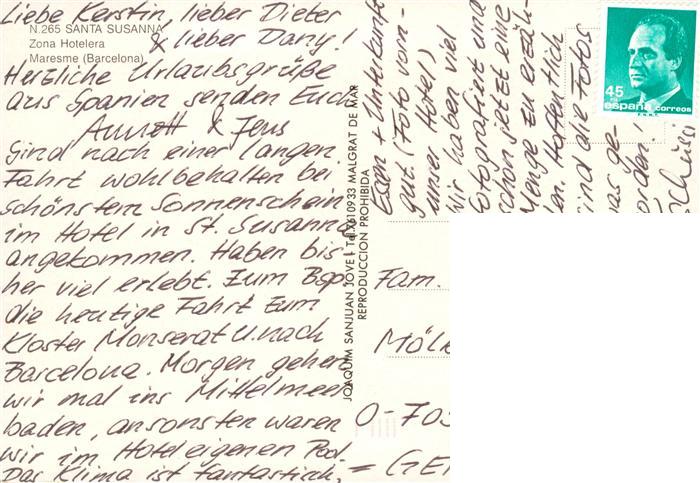 Liebe Kerstin, lieber Dieter
& lieber Dany!
Herzliche Urlaubsgrüße
aus Spanien senden Euch
Annett & Jens
Sind nach einer langen
Fahrt wohlbehalten bei
schönstem Sonnenschein
im Hotel in St. Susanna
angekommen. Haben bis
her viel erlebt. Zum Bsp.
die heutige Fahrt zum
Kloster Monserat u. nach
Barcelona. Morgen gehen
wir mal ins Mittelmeer
baden, ansonsten waren
wir im Hoteleigenen Pool.
Das Klima ist fantastisch,
Essen + Unterkunft
gut (Foto vom
unser Hotel)
Wir haben viel
fotografiert und
schon jetzt eine
Menge zu erzäh-
len. Hoffentlich
sind die Fotos
was ge-
worden!
Tschüssi
N.265 SANTA SUSANNA
Zona Hotelera
Maresme (Barcelona)
JOAQUIM SANJUAN JOVE - Tel. 7610933 MALGRAT DE MAR
REPRODUCCION PROHIBIDA
45
españa correos
F.N.M.T.
Fam.
Möl
O-703
= GE